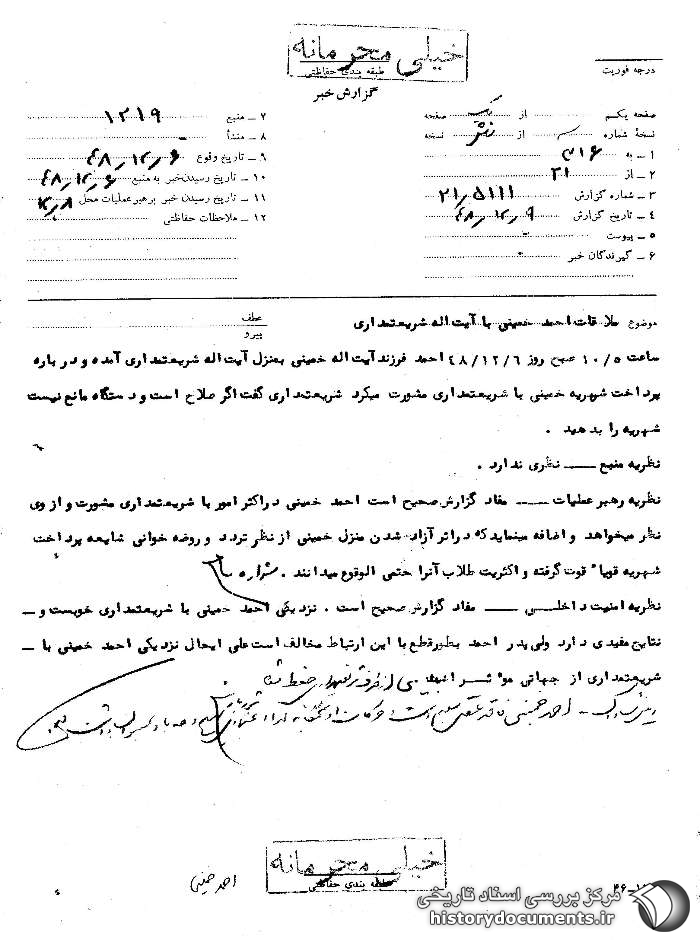 خیلی محرمانه
طبقه بندی حفاظتی
درجه فوریت
گزارش خبر
صفحه یکم از یک صفحه
نسخهٔ شماره از نسخه
۱ ـ به ۳۱۶
۲ ـ از ۲۱
۳ ـ شماره گزارش ۲۱٫۵۱۱۱
۴ ـ تاریخ گزارش ۴۸٫۱۲٫۹
۵ ـ پیوست -
۶ ـ گیرندگان خبر
۷ ـ منبع ۱۲۱۹
۸ ـ منشأ -
۹ ـ تاریخ وقوع ۴۸٫۱۲٫۶
۱۰ ـ تاریخ رسیدن خبر به منبع ۴۸٫۱۲٫۶
۱۱ ـ تاریخ رسیدن خبر برهبر عملیات محل ۱۲٫۸
۱۲ ـ ملاحظات حفاظتی
موضوع ملاقات احمد خمینی با آیت اله شریعتمداری
عطف
پیرو
ساعت ۱۰/۵ صبح روز ۴۸/۱۲/۶ احمد فرزند آیت اله خمینی بمنزل آیت اله شریعتمداری آمده و درباره
پرداخت شهریه خمینی با شریعتمداری مشورت میکرد شریعتمداری گفت اگر صلاح است و دستگاه مانع نیست
شهریه را بدهید .
نظریه منبع ــــ نظری ندارد .
نظریه رهبر عملیات ــــ مفاد گزارش صحیح است احمد خمینی در اکثر امور با شریعتمداری مشورت و از وی
نظر میخواهد و اضافه مینماید که در اثر آزاد شدن منزل خمینی از نظر تردد و روضه خوانی شایعه پرداخت
شهریه قویا" قوت گرفته و اکثریت طلاب آنرا حتمی الوقوع میدانند .
نظریه امنیت داخلی ــــ مفاد گزارش صحیح است . نزدیکی احمد خمینی با شریعتمداری خوبست و ـ
نتایج مفیدی دارد ولی پدر احمد بطور قطع با این ارتباط مخالف است علی ایحال نزدیکی احمد خمینی با ـ
شریعتمداری از جهاتی موثر
احمد خمینی فاقد
خیلی محرمانه
طبقه بندی حفاظتی
احمد خمینی
مرکز بررسی اسناد تاریخی
historydocuments.ir